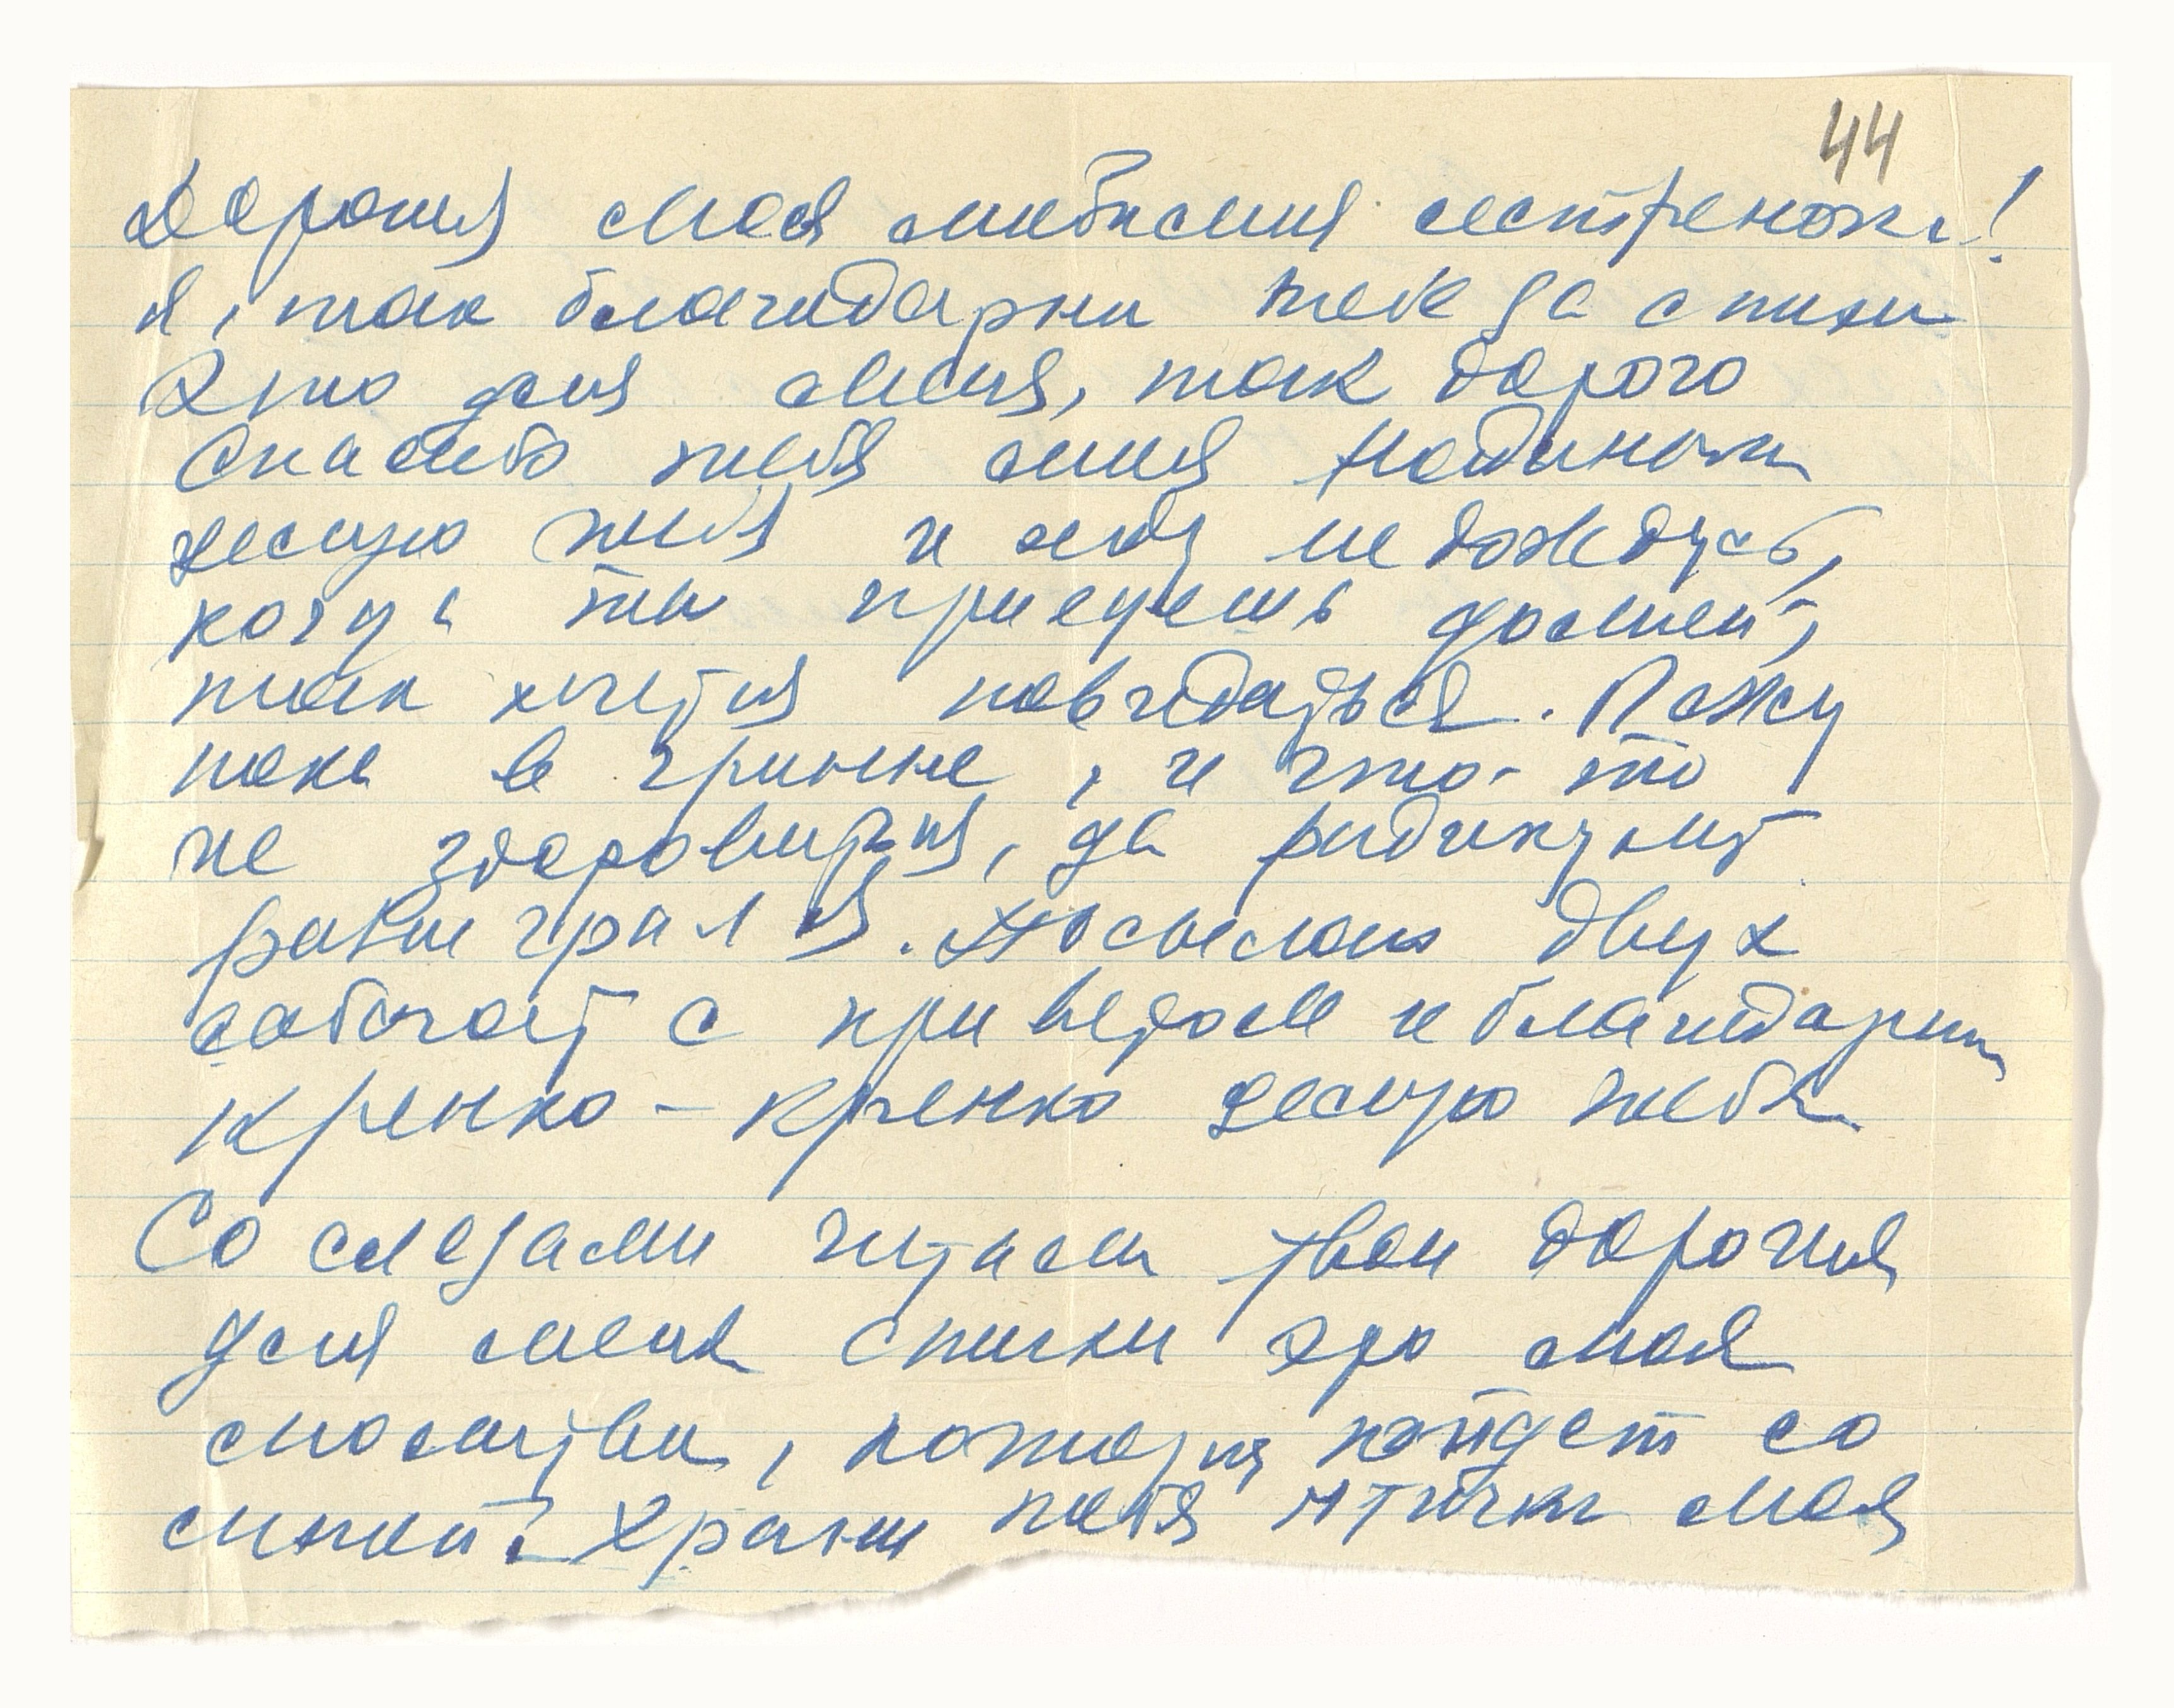 44
Дорогая моя любимая сестреночка!
я, так благодарна тебе за стихи
Это для меня, так дорого
Спасибо тебя милая Надиночка
целую тебя и жду не дождусь,
когда ты приедешь домой,
так хочется повидаться. Лежу
пока в гриппе, и что-то
не здоровится, да радикулит
разыгрался. Посылаю двух
собачат с приветом и благодарим
Крепко-крепко целую тебя
Со слезами читаем твои дорогия
для меня стихи это моя
молитва, которая пойдет со
мной. Храни тебя птичка моя